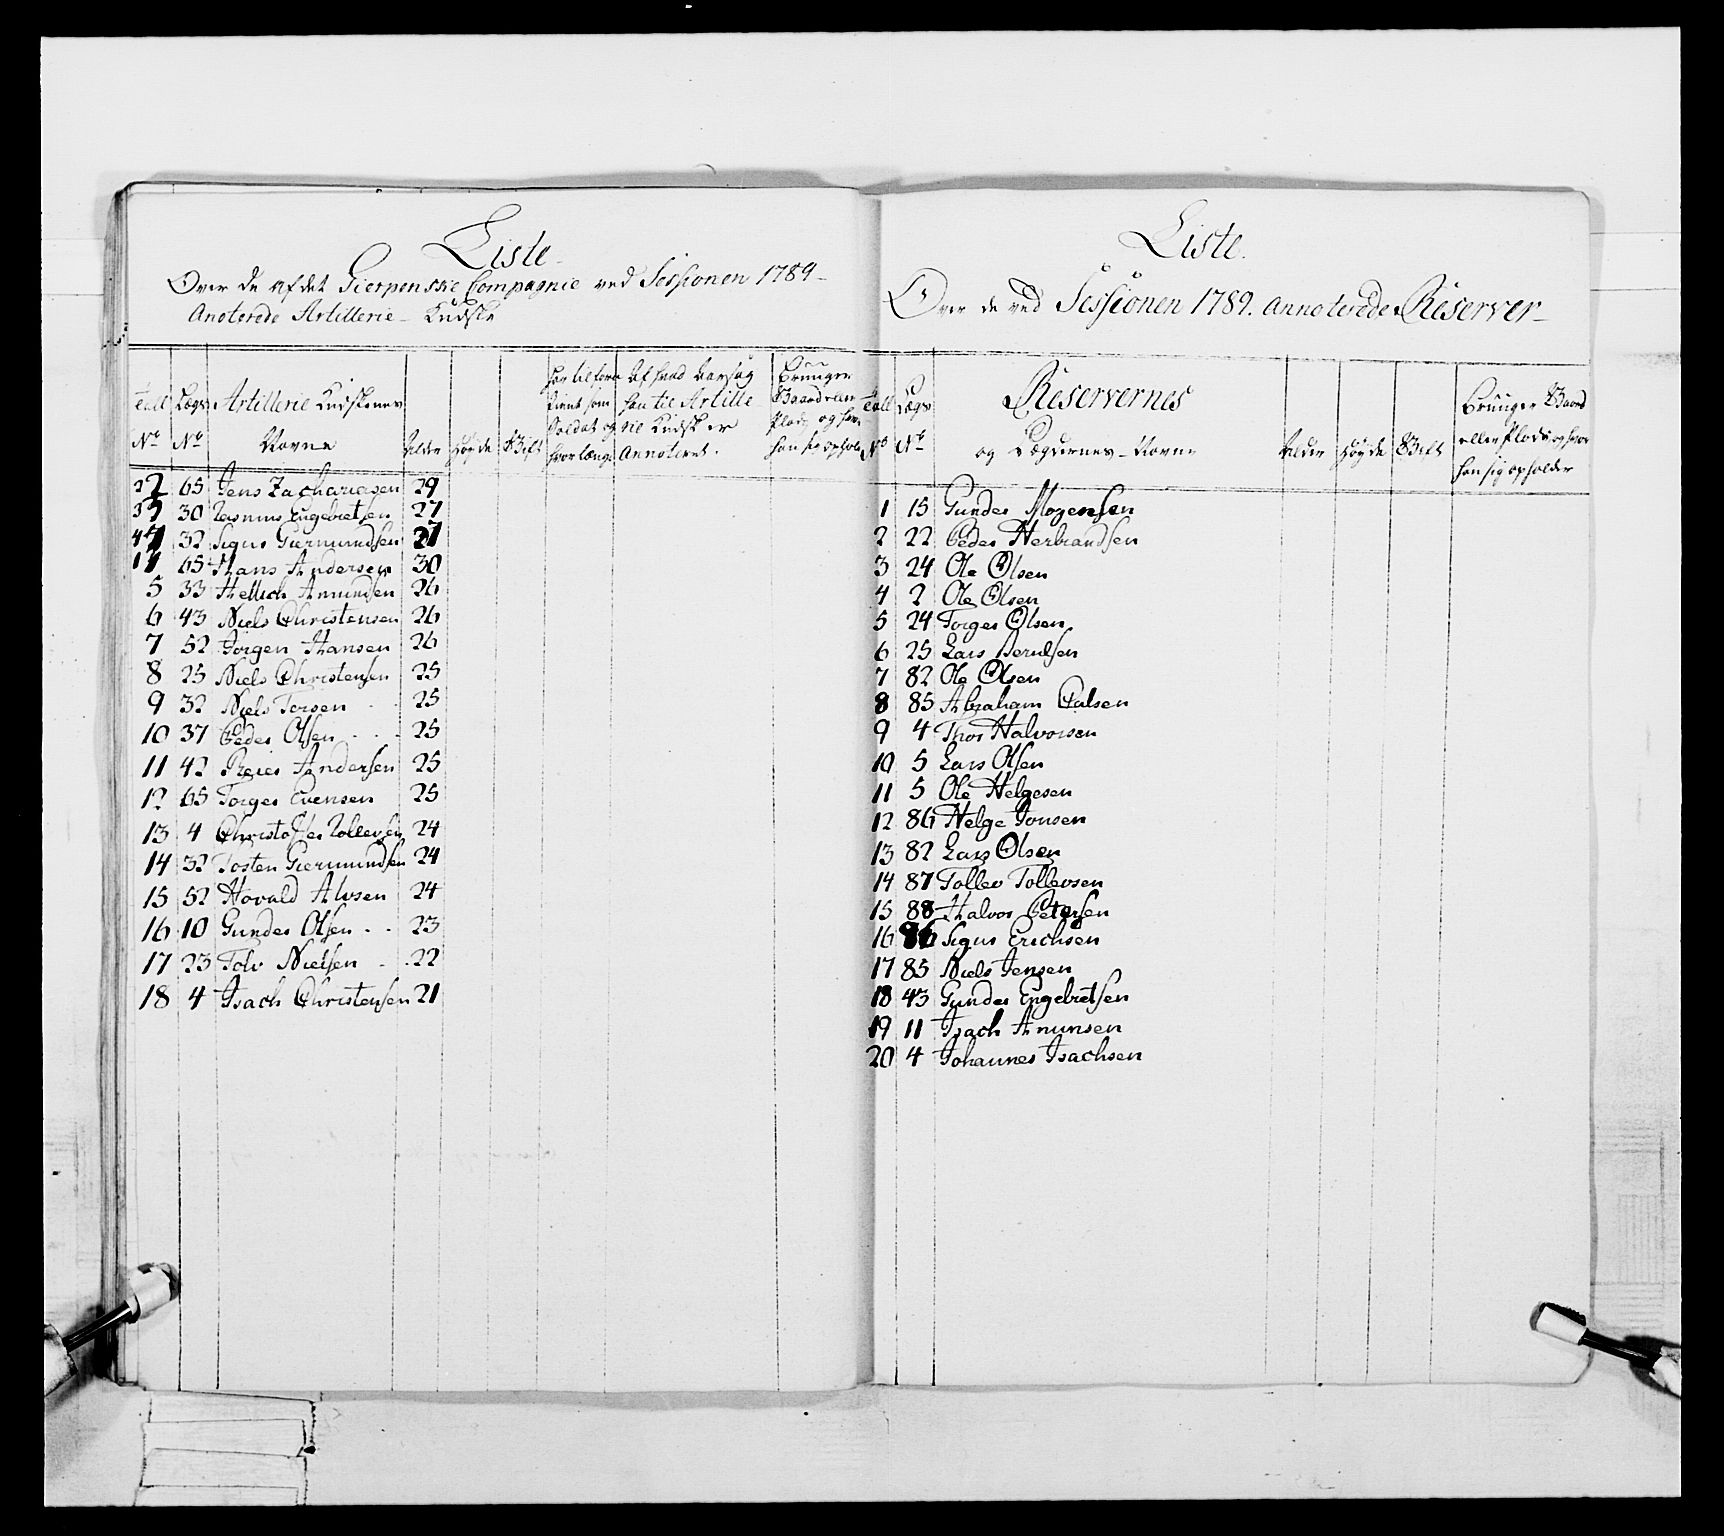 Liste
Over de af det Gierpenske Compagnie ved Sessionen 1789
Anoterede Artillerie Kudske
Tall No
Legs No
Artillerie Kudskenes Navne
Alder
Høyde
Gift
har tilforn tient som Soldat og hvorlænge
Af hvad Aarsag han til Artille rie Kudsk er Annoteret.
Bruuger Gaard eller Plads, og hvor han sig opholder
65 Jens Zachariasen 29
30 Rasmus Engebretsen 27
32 Sigur Giermundsen 27
65 Hans Andersen 30
5 33 Hellich Amundsen 26
6 43 Niels Christensen 26
7 52 Jørgen Hansen 26
8 25 Niels Christensen 25
9 32 Niels Torsen 25
10 37 Peder Olsen 25
11 42 Reier Andersen 25
12 65 Torger Evensen 25
13 4 Christoffer Tollevsen 24
14 32 Tosten Giermundsen 24
15 52 Hovald Alvsen 24
16 10 Gunder Olsen 23
17 23 Tolv Nielsen 22
18 4 Isach Christensen 21
Liste.
Over de ved Sessionen 1789. annoterede Reserver
Tall No
Legs No
Reservernes
og Legdernes Navne
Alder
Høyde
Gift
Bruuger Gaard
eller Plads og hvor
han sig opholder
1 15 Gunder Mogensen
2 22 Peder Herbrandsen
3 24 Ole Olsen
4 2 Ole Olsen
5 24 Torger Olsen
6 25 Lars Berulsen
7 82 Ole Olsen
8 85 Abraham Palsen
9 4 Thor Halvorsen
10 5 Lars Olsen
11 5 Ole Helgesen
12 86 Helge Jonsen
13 82 Lars Olsen
14 87 Tollev Tollevsen
15 88 Halvor Petersen
16 86 Sigur Erichsen
17 85 Niels Jensen
18 43 Gunder Engebretsen
19 11 Isach Anunsen
20 4 Johannes Isachsen